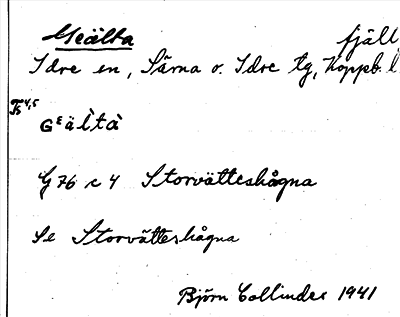 Geälta fjäll
Idre sn, Särna o. Idre tg, Koppb. l
F54,5
Gᴱäl̀tà
G 76 c 4 Storvätteshågna
Se Storvätteshågna
Björn Collinder 1941